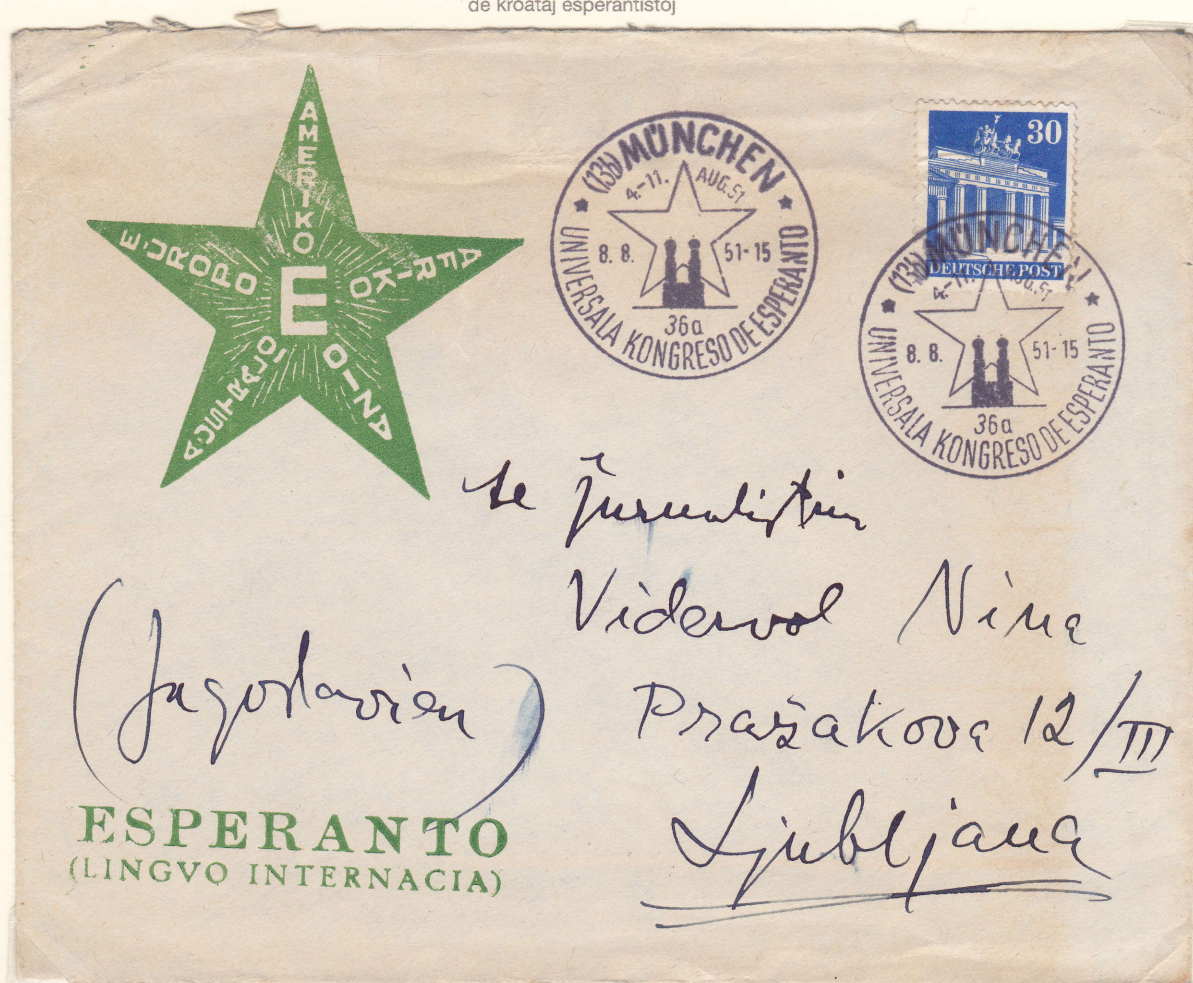 de kroataj esperantistoj
AMERIKO
EŬROPO
AFRIKO
E
AŬSTRALIO
AZIO
(13b) MÜNCHEN
4.-11. AUG. 51
8. 8. 51-15
36a
UNIVERSALA KONGRESO DE ESPERANTO
30
DEUTSCHE POST
(13b) MÜNCHEN
4.-11. AUG. 51
8. 8. 51-15
36a
UNIVERSALA KONGRESO DE ESPERANTO
Vidervol Nina
(Jugoslavien)
Pražakova 12/III
Ljubljana
ESPERANTO
(LINGVO INTERNACIA)